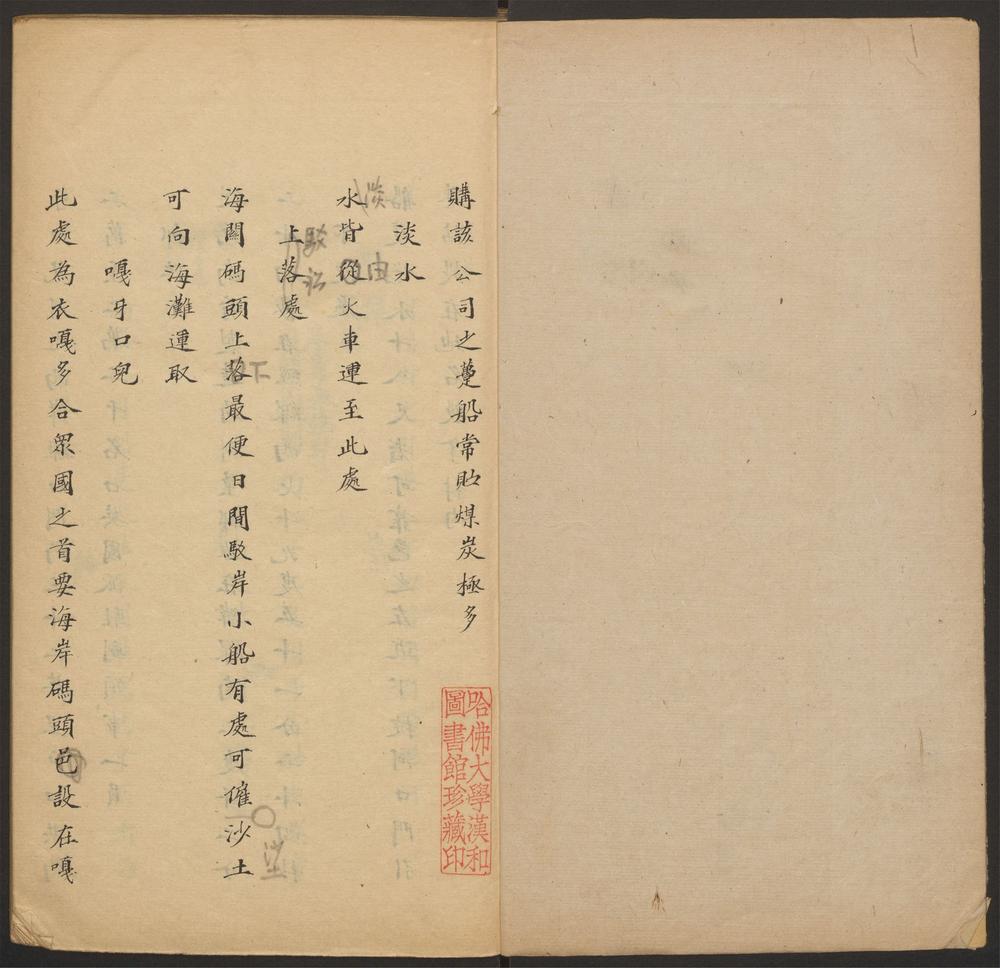 購該公司之躉船常貯煤炭極多
淡水
淡
水皆從火車運至此處
由
上落處
駁
海關碼頭上落最便日間駁岸小船有處可僱沙土
下
沙
可向海灘運取
嘎牙口兒
此處為衣嘎多合眾國之首要海岸碼頭邑設在嘎
哈佛大學漢和
圖書館珍藏印